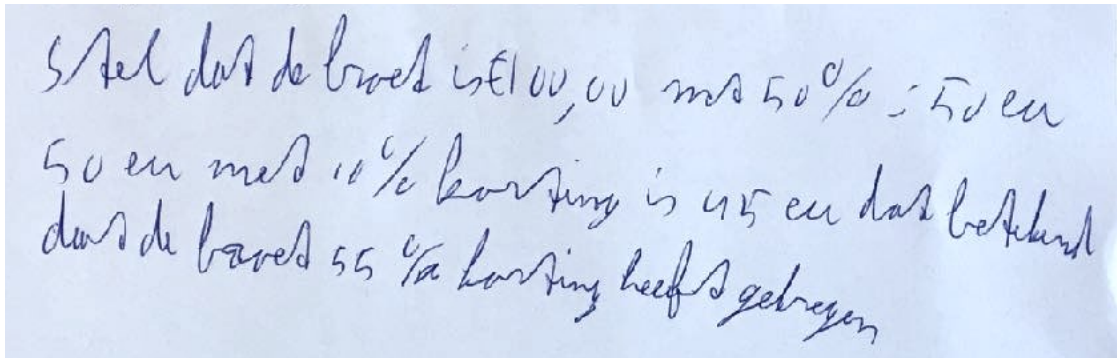 Stel dat de broek is €100,00 met 50% = 50 en
50 en met 10% korting is 45 en dat betekend
dat de broek 55% korting heeft gekregen